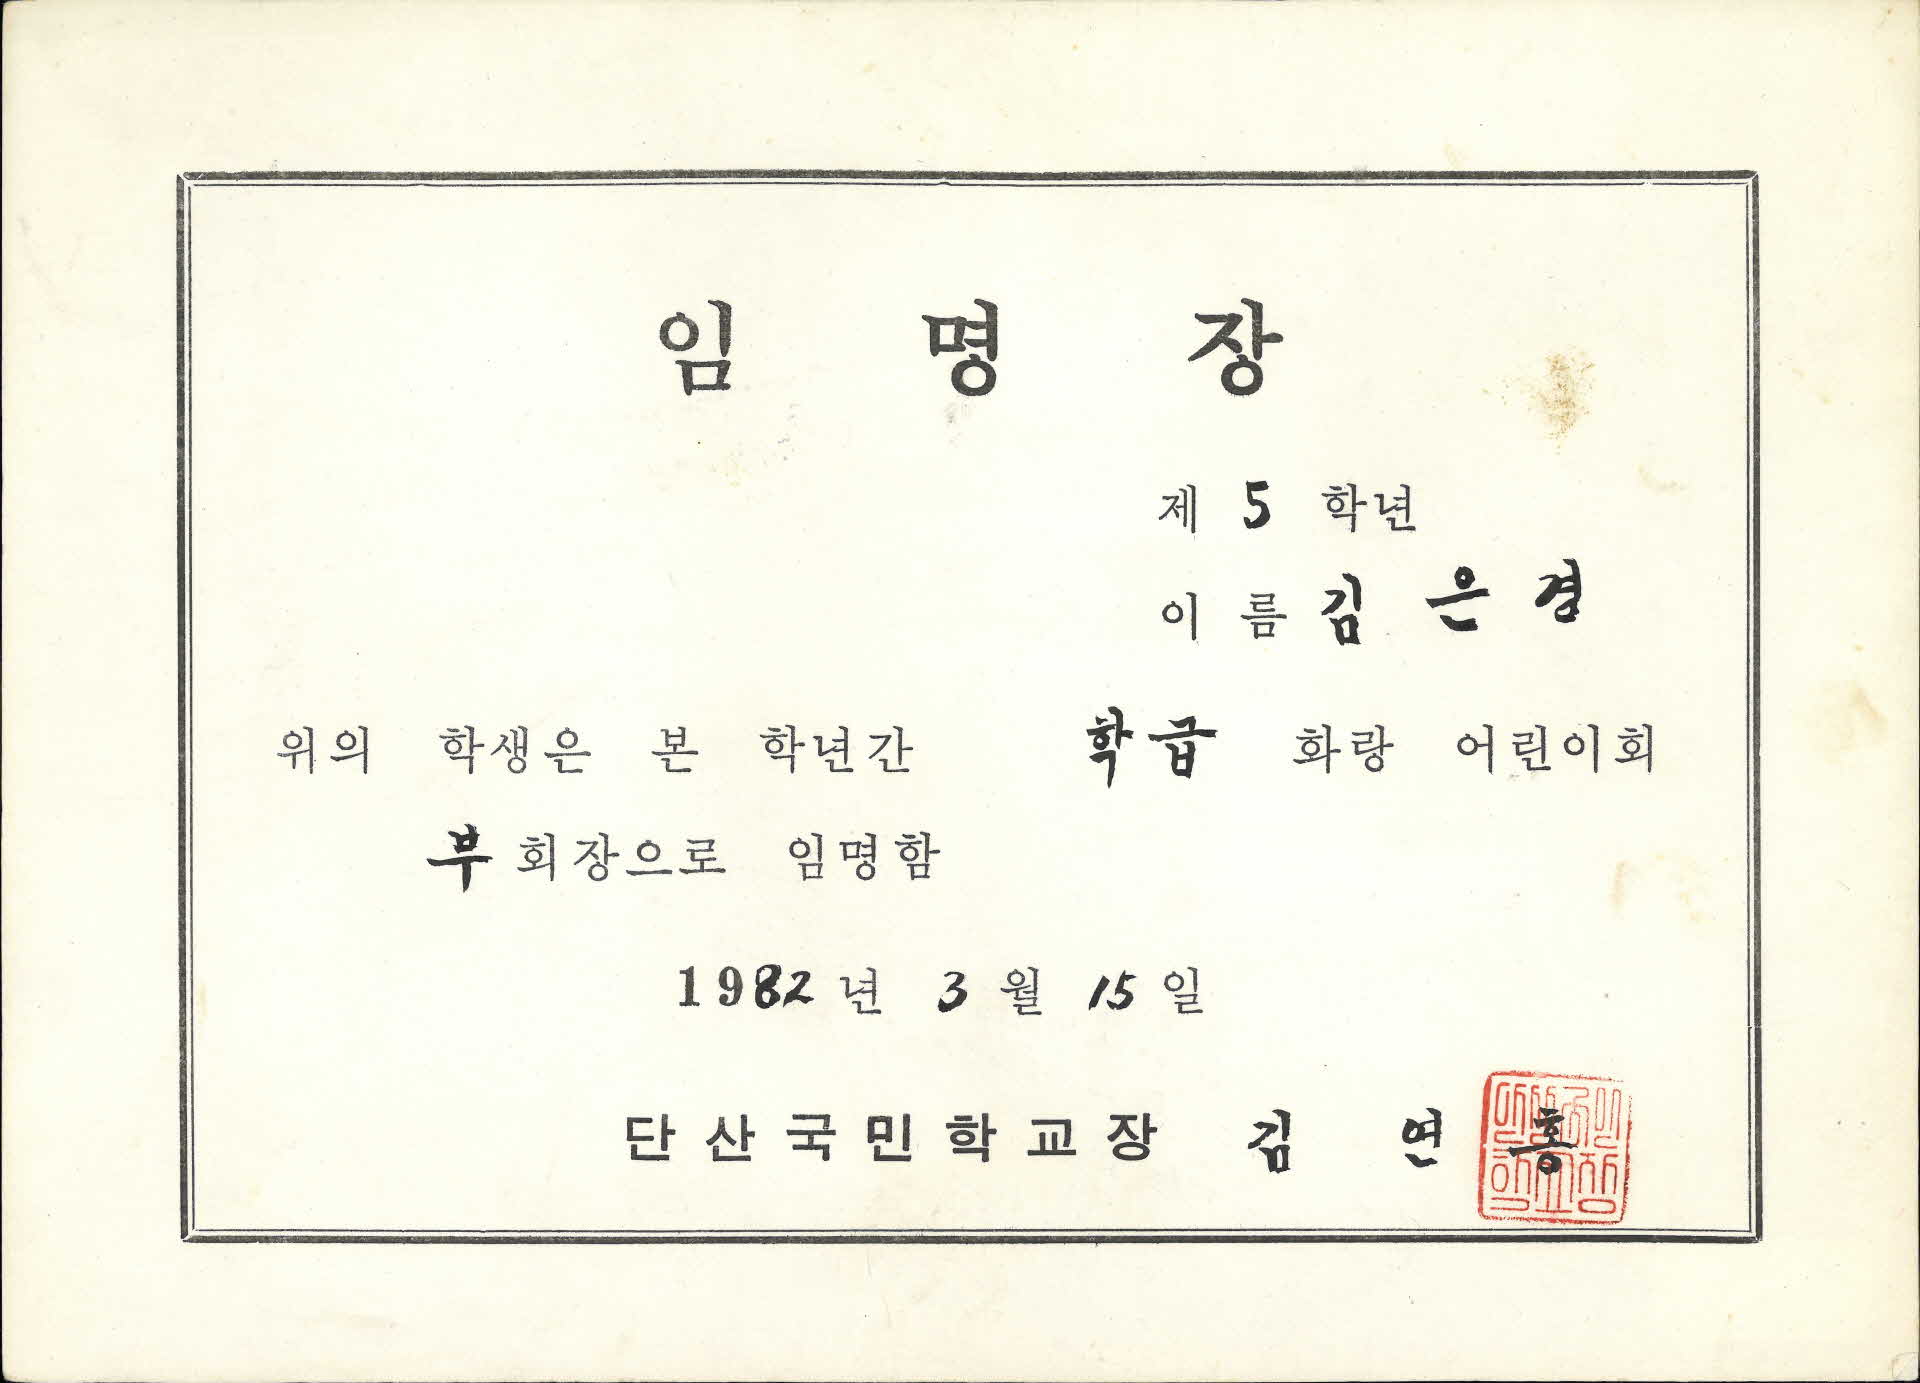 임 명 장
제 5 학년
이 름 김 은 경
위의 학생은 본 학년간 학급 화랑 어린이회
부회장으로 임명함
1982년 3월 15일
단산국민학교장 김 연 홍